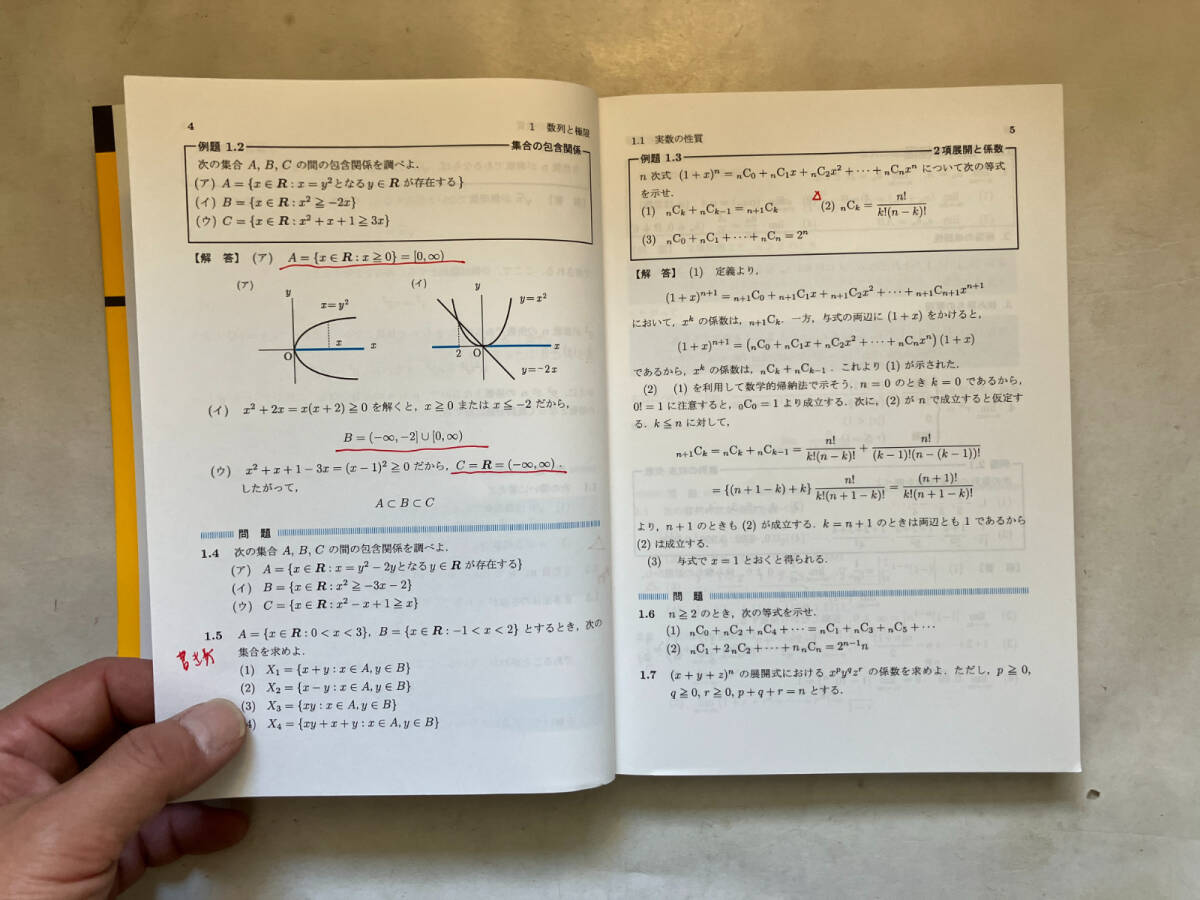 4
1 数列と極限
例題 1.2
集合の包含関係
次の集合 A, B, C の間の包含関係を調べよ.
(ア) A = {x ∈ R : x = y²となる y ∈ R が存在する}
(イ) B = {x ∈ R : x² ≧ −2x}
(ウ) C = {x ∈ R : x² + x + 1 ≧ 3x}
【解 答】 (ア) A = {x ∈ R : x ≧ 0} = [0, ∞)
(ア)
y
x = y²
x
x
O
(イ)
y
y = x²
x
2
O
y = −2x
(イ) x² + 2x = x(x + 2) ≧ 0 を解くと, x ≧ 0 または x ≦ −2 だから,
B = (−∞, −2] ∪ [0, ∞)
(ウ) x² + x + 1 − 3x = (x − 1)² ≧ 0 だから, C = R = (−∞, ∞) .
したがって,
A ⊂ B ⊂ C
問 題
1.4 次の集合 A, B, C の間の包含関係を調べよ.
(ア) A = {x ∈ R : x = y² − 2y となる y ∈ R が存在する}
(イ) B = {x ∈ R : x² ≧ −3x − 2}
(ウ) C = {x ∈ R : x² − x + 1 ≧ x}
1.5 A = {x ∈ R : 0 < x < 3}, B = {x ∈ R : −1 < x < 2} とするとき, 次の
集合を求めよ.
(1) X₁ = {x + y : x ∈ A, y ∈ B}
(2) X₂ = {x − y : x ∈ A, y ∈ B}
(3) X₃ = {xy : x ∈ A, y ∈ B}
4) X₄ = {xy + x + y : x ∈ A, y ∈ B}
1.1 実数の性質
5
例題 1.3
2項展開と係数
n 次式 (1 + x)ⁿ = ₙC₀ + ₙC₁x + ₙC₂x² + ⋯ + ₙCₙxⁿ について次の等式
を示せ.
(1) ₙCₖ + ₙCₖ₋₁ = ₙ₊₁Cₖ (2) ₙCₖ = n!/(k!(n − k)!)
(3) ₙC₀ + ₙC₁ + ⋯ + ₙCₙ = 2ⁿ
【解 答】 (1) 定義より,
(1 + x)ⁿ⁺¹ = ₙ₊₁C₀ + ₙ₊₁C₁x + ₙ₊₁C₂x² + ⋯ + ₙ₊₁Cₙ₊₁xⁿ⁺¹
において, xᵏ の係数は, ₙ₊₁Cₖ. 一方, 与式の両辺に (1 + x) をかけると,
(1 + x)ⁿ⁺¹ = (ₙC₀ + ₙC₁x + ₙC₂x² + ⋯ + ₙCₙxⁿ) (1 + x)
であるから, xᵏ の係数は, ₙCₖ + ₙCₖ₋₁ . これより (1) が示された.
(2) (1) を利用して数学的帰納法で示そう. n = 0 のとき k = 0 であるから,
0! = 1 に注意すると, ₀C₀ = 1 より成立する. 次に, (2) が n で成立すると仮定す
る. k ≦ n に対して,
ₙ₊₁Cₖ = ₙCₖ + ₙCₖ₋₁ = n!/(k!(n − k)!) + n!/((k − 1)!(n − (k − 1))!)
= {(n + 1 − k) + k} n!/(k!(n + 1 − k)!) = (n + 1)!/(k!(n + 1 − k)!)
より, n + 1 のときも (2) が成立する. k = n + 1 のときは両辺とも 1 であるから
(2) は成立する.
(3) 与式で x = 1 とおくと得られる.
問 題
1.6 n ≧ 2 のとき, 次の等式を示せ.
(1) ₙC₀ + ₙC₂ + ₙC₄ + ⋯ = ₙC₁ + ₙC₃ + ₙC₅ + ⋯
(2) ₙC₁ + 2ₙC₂ + ⋯ + nₙCₙ = 2ⁿ⁻¹n
1.7 (x + y + z)ⁿ の展開式における xᵖy^qzʳ の係数を求めよ. ただし, p ≧ 0,
q ≧ 0, r ≧ 0, p + q + r = n とする.